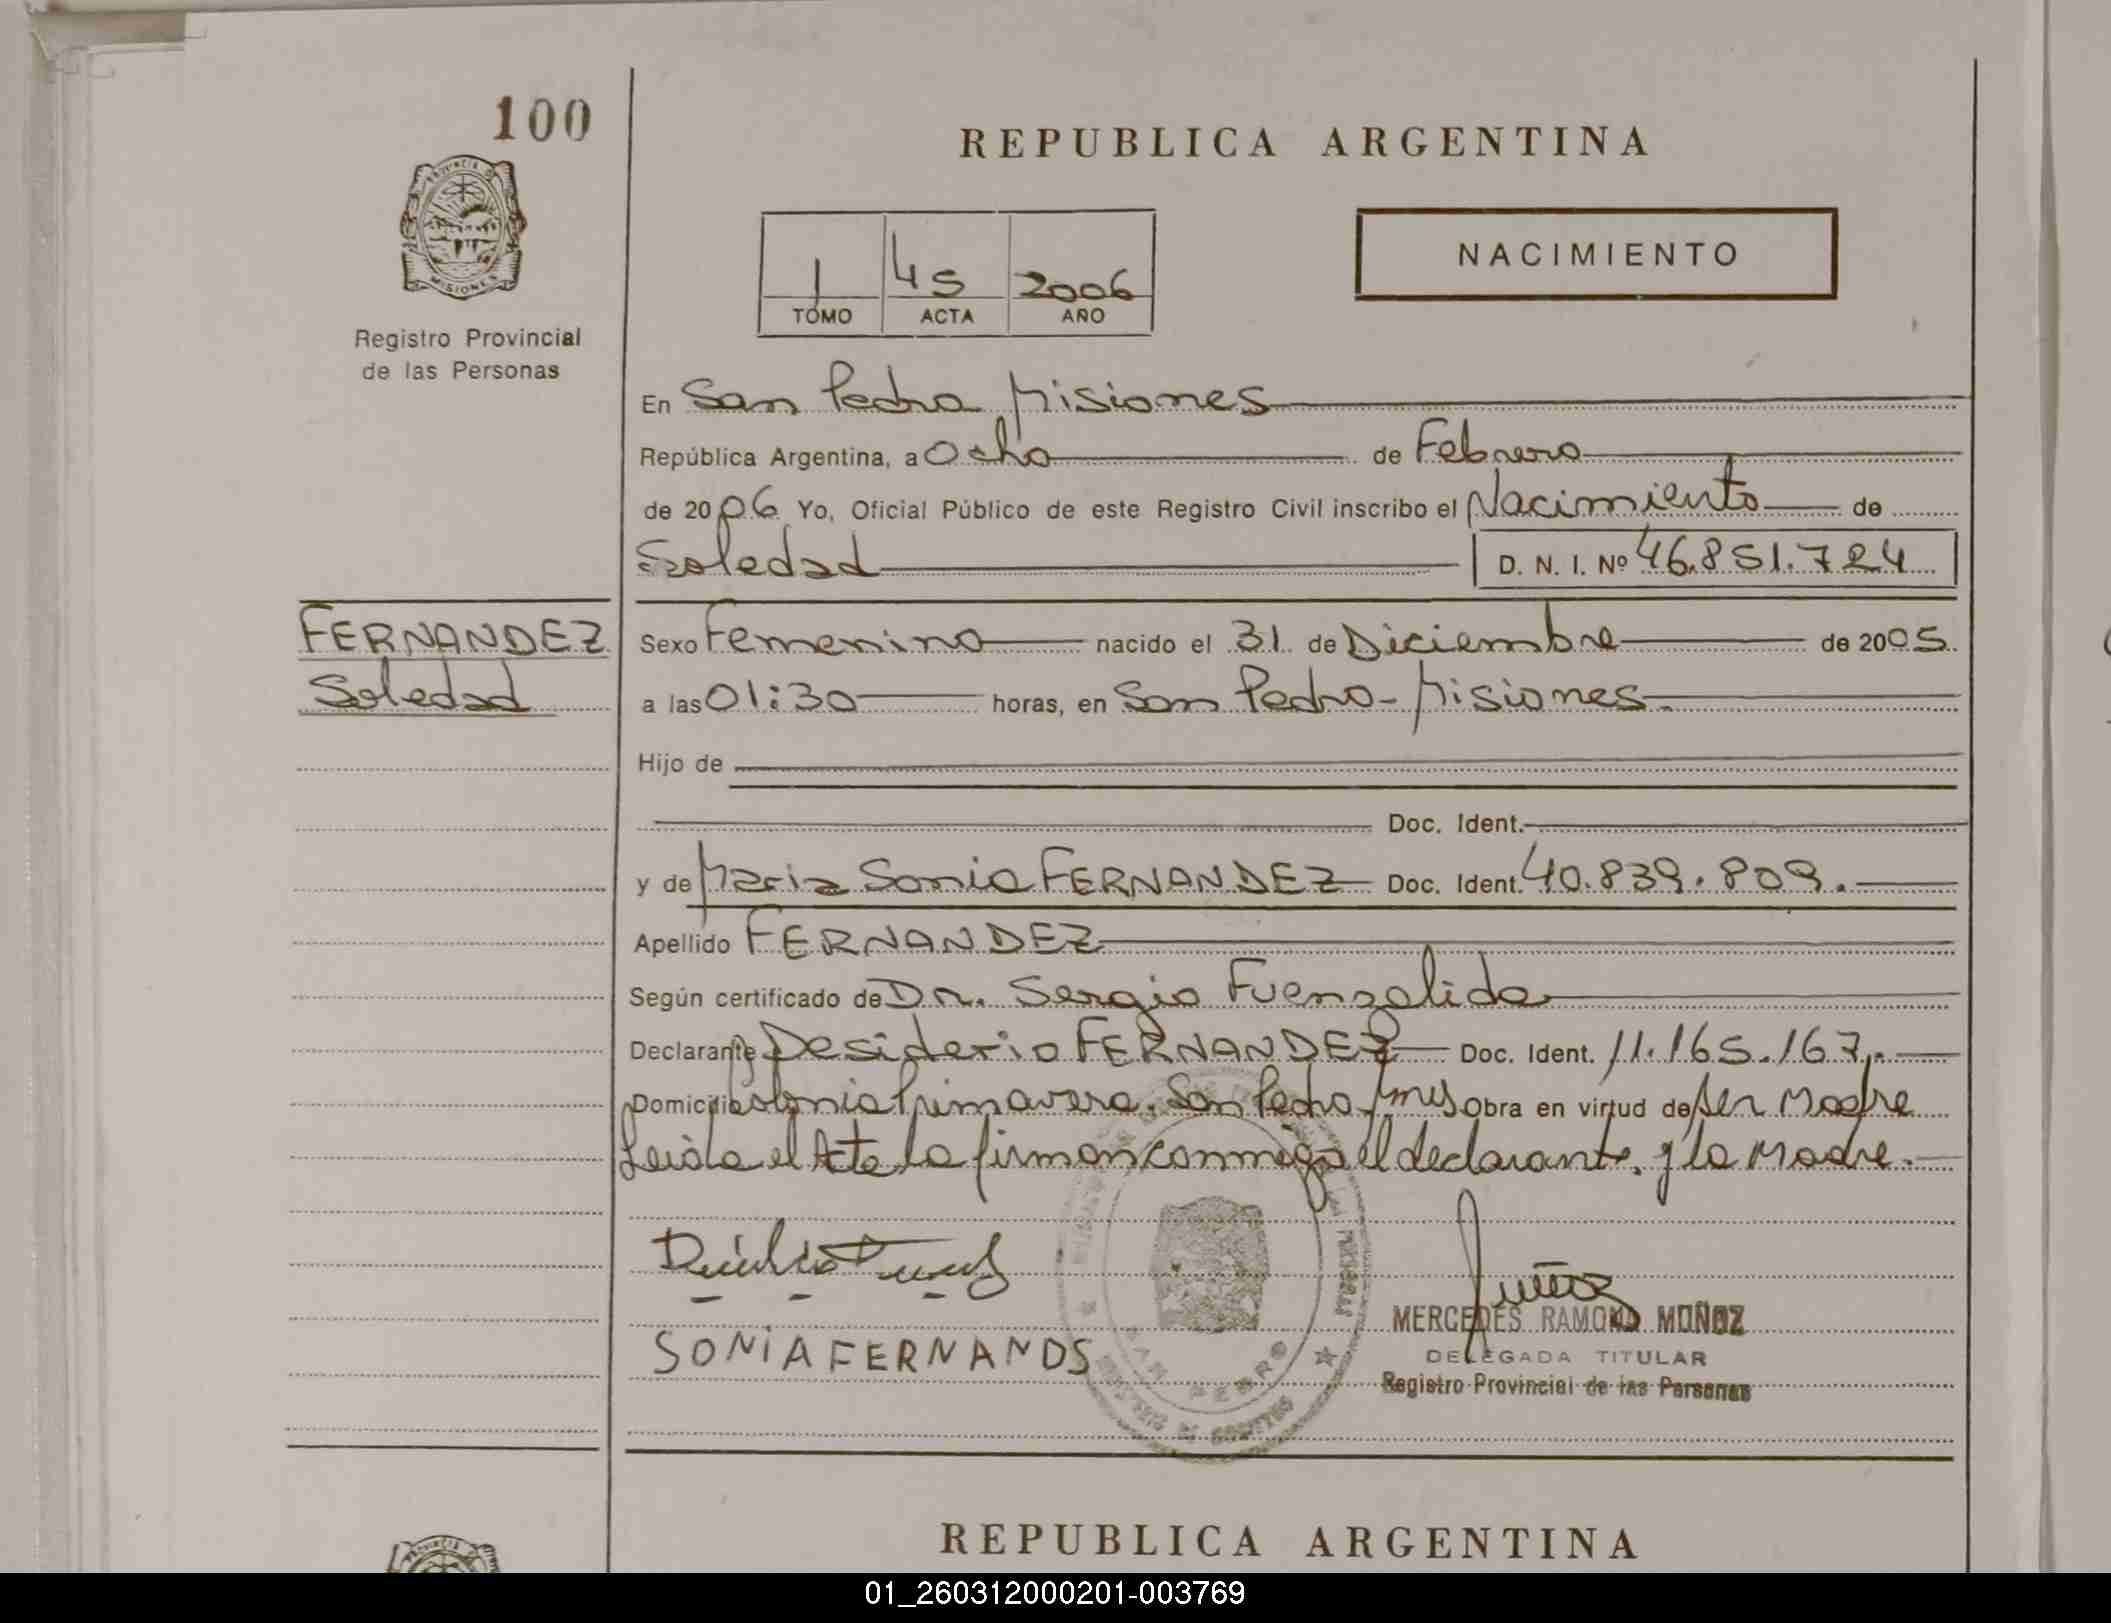 100
REPUBLICA ARGENTINA
PROVINCIA DE
MISIONES
Registro Provincial
de las Personas
NACIMIENTO
1 45 2006
TOMO ACTA AÑO
En San Pedro Misiones
República Argentina, a Ocho de Febrero
de 2006 Yo, Oficial Público de este Registro Civil inscribo el Nacimiento de
Soledad D. N. I. Nº 46.851.724
FERNANDEZ
Soledad
Sexo Femenino nacido el 31 de Diciembre de 2005
a las 01:30 horas, en San Pedro - Misiones.
Hijo de
Doc. Ident.
y de Maria Sonia FERNANDEZ Doc. Ident. 40.839.809.
Apellido FERNANDEZ
Según certificado de Dr. Sergio Fuenzalida
Declarante Desiderio FERNANDEZ Doc. Ident. 11.165.167.
Domicilio Colonia Primavera. San Pedro. Mnes Obra en virtud de Ser Madre
Leida el Acta la firman conmigo el declarante, y la Madre.
SONIA FERNANDS
MERCEDES RAMONA MUÑOZ
DELEGADA TITULAR
Registro Provincial de las Personas
SAN PEDRO
REPUBLICA ARGENTINA
01_260312000201-003769